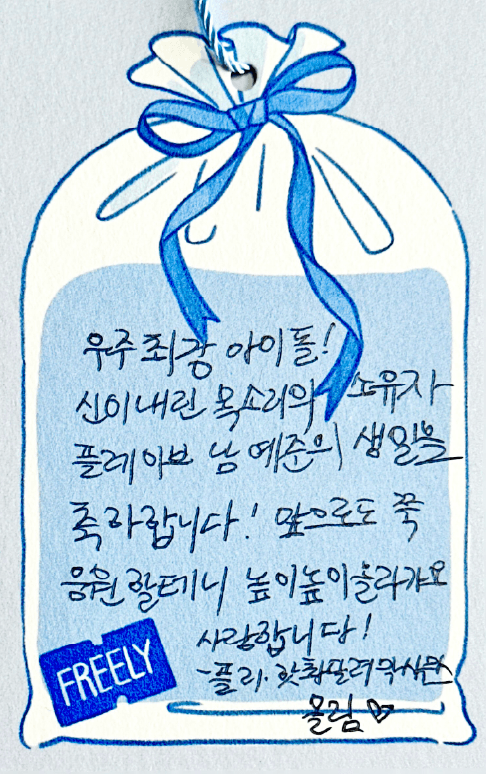 우주최강 아이돌!
신이내린 목소리의 소유자
플레이브 남 예준의 생일을
축하합니다! 앞으로도 쭉
응원할테니 높이높이올라가요
사랑합니다!
-플리.
올림♡
FREELY